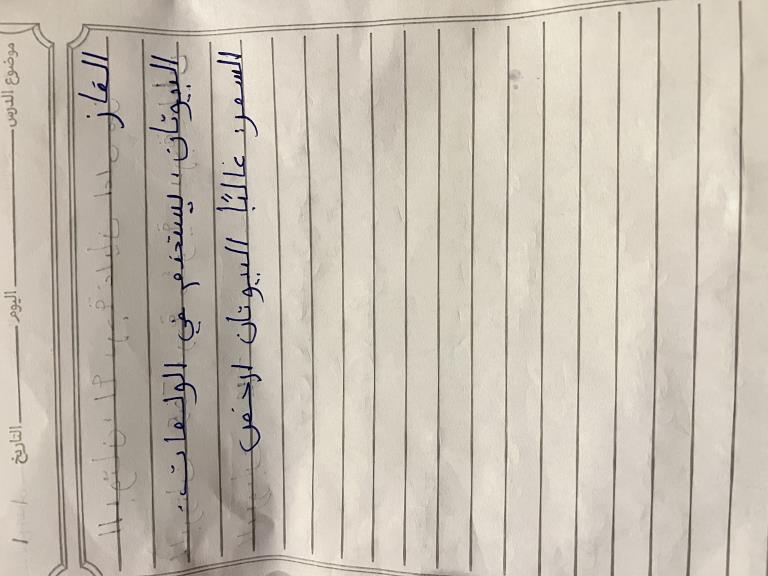 موضوع الدرس اليوم التاريخ / /
الغاز
البيوتان: يستخدم في الولاعات.
السعر: غالبًا البيوتان ارخص